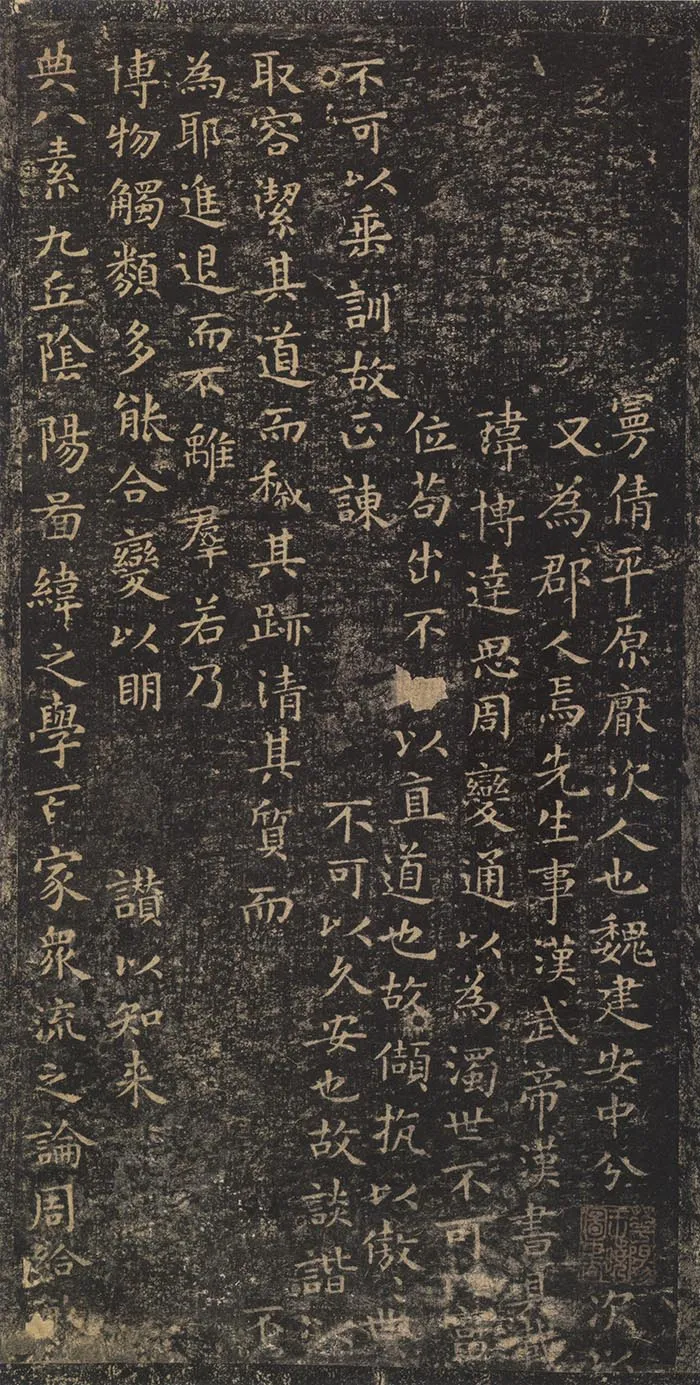 曼倩平原厭次人也魏建安中分次以
又為郡人焉先生事漢武帝漢書具載
瑋博達思周變通以為濁世不可富
位苟出不以直道也故傾抗以傲世
不可以垂訓故正諫不可以久安也故談諧以
取容潔其道而穢其跡清其質而不
為耶進退而不離羣若乃
博物觸類多能合變以明讃以知来
典八素九丘陰陽啚緯之學百家衆流之論周給敏